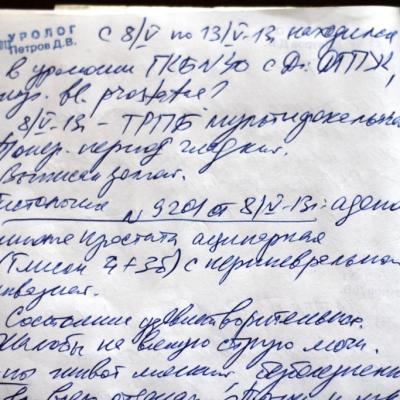 УРОЛОГ
Петров Д.В.
с 8/V по 13/V-13 находился
в урологии ГКБ N40 с Ds: ДГПЖ,
bl. prostatae?
8/V-13г - ТРПБ мультифокальная
Послеопер. период гладкий.
Выписан домой.
Гистология N 9201 от 8/V-13г: адено
простаты ацинарная
(Глисон 4+3б) с периневральной
инвазией.
Состояние удовлетворительное.
Жалобы на вялую струю мочи.
живот мягкий, безболезнен